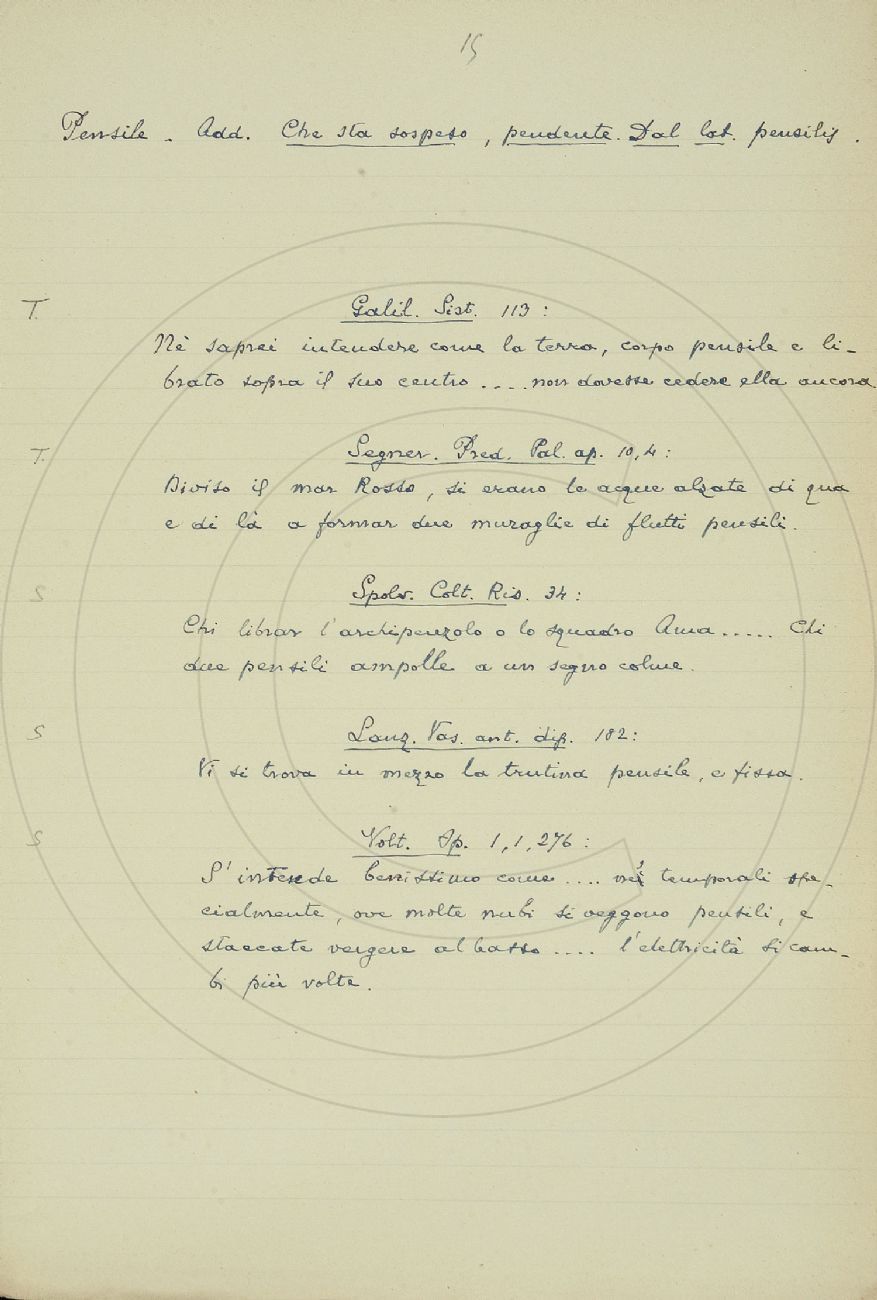 15
Pensile - Add. Che sta sospeso, pendente. Dal lat. pensilis.
T. Galil. Sist. 113:
Nè saprei intendere come la terra, corpo pensile e li-
brato sopra il suo centro .... non dovesse cedere ella ancora
T. Segner. Pred. Pal. ap. 10,4:
Diviso il mar Rosso, si erano le acque alzate di qua
e di là a formar due muraglie di flutti pensili.
S Spolv. Colt. Ris. 34:
Chi librar l'archipenzolo o lo squadro Ama..... Chi
due pensili ampolle a un segno colme.
S Lanz. Vas. ant. dip. 182:
Vi si trova in mezzo la trutina pensile, e fissa.
S Volt. Op. 1,1,276:
S'intende benissimo come .... ne' temporali spe-
cialmente, ove molte nubi si veggono pensili, e
staccate vergere al basso .... l'elettricità si cam-
bi più volte.